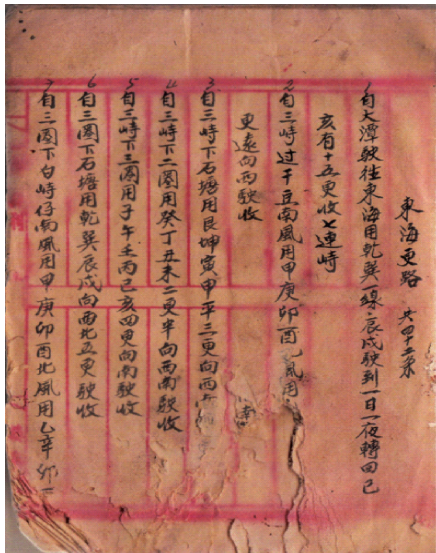 東海更路 共四十二条
1 自大潭駛往東海用乾巽一線辰戌駛到一日一夜轉回己
亥有十五更收七連峙
2 自三峙过干豆南風用甲庚卯酉北風用
更遠向西駛收
3 自三峙下石塘用艮坤寅甲平三更向西南
4 自三峙下二圈用癸丁丑未二更半向西南駛收
5 自三峙下三圈用子午壬丙己亥四更向南駛收
6 自三圈下石塘用乾巽辰戌向西北五更駛收
7 自三圈下白峙仔南風用甲庚卯酉北風用乙辛卯